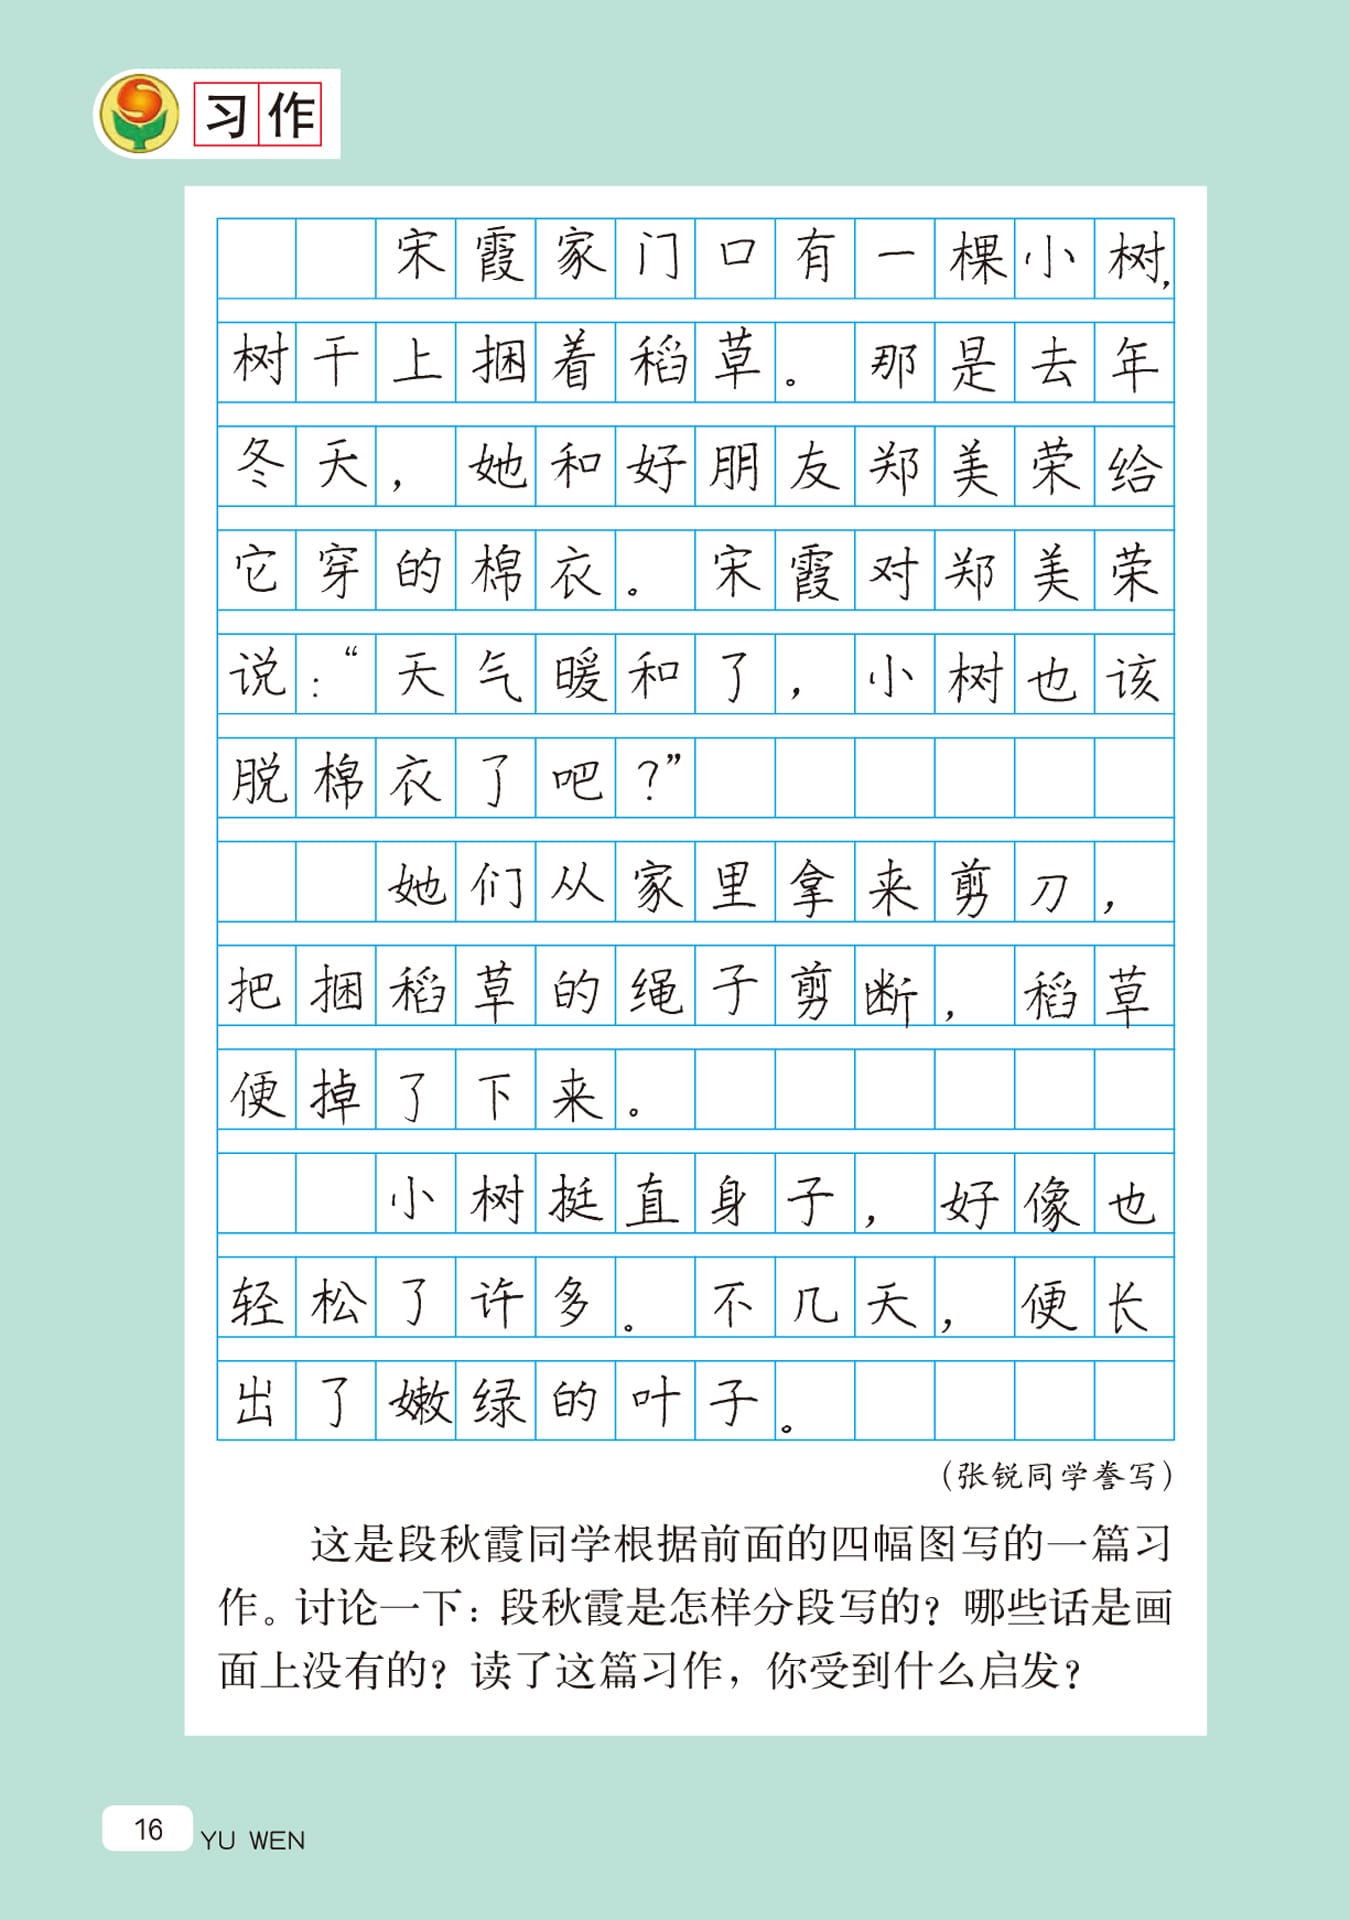 习作
宋霞家门口有一棵小树，
树干上捆着稻草。那是去年
冬天，她和好朋友郑美荣给
它穿的棉衣。宋霞对郑美荣
说：“天气暖和了，小树也该
脱棉衣了吧？”
她们从家里拿来剪刀，
把捆稻草的绳子剪断，稻草
便掉了下来。
小树挺直身子，好像也
轻松了许多。不几天，便长
出了嫩绿的叶子。
（张锐同学誊写）
这是段秋霞同学根据前面的四幅图写的一篇习
作。讨论一下：段秋霞是怎样分段写的？哪些话是画
面上没有的？读了这篇习作，你受到什么启发？
16
YU WEN